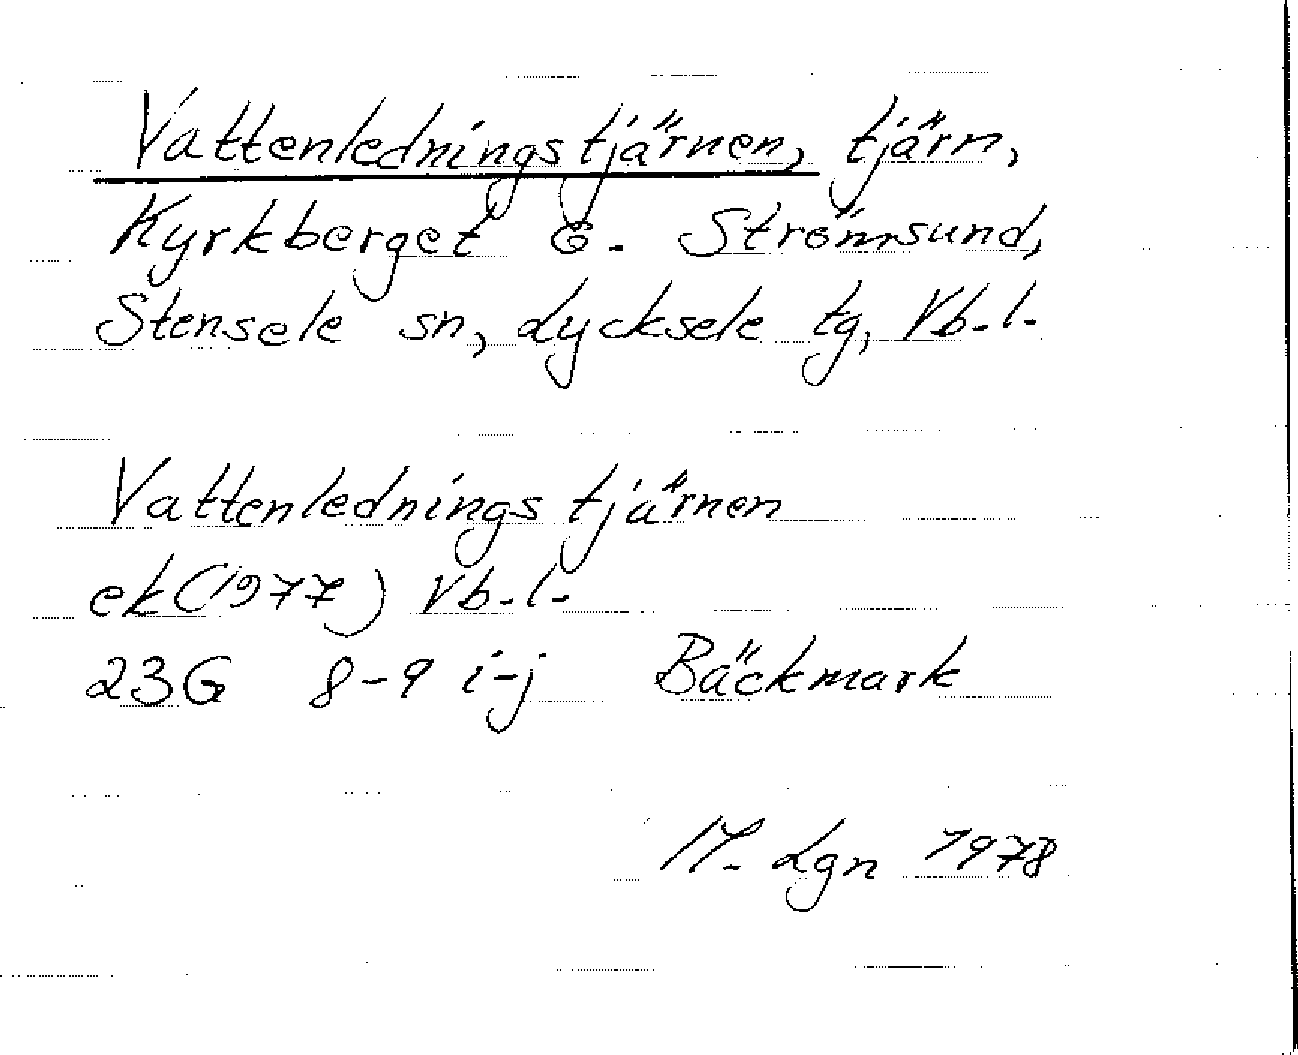 Vattenledningstjärnen, tjärn,
Kyrkberget o. Strömsund,
Stensele sn, Lycksele tg, Vb.l.
Vattenledningstjärnen
ek (1977) Vb.l.
23G 8-9 i-j Bäckmark
M. Lgn 1978